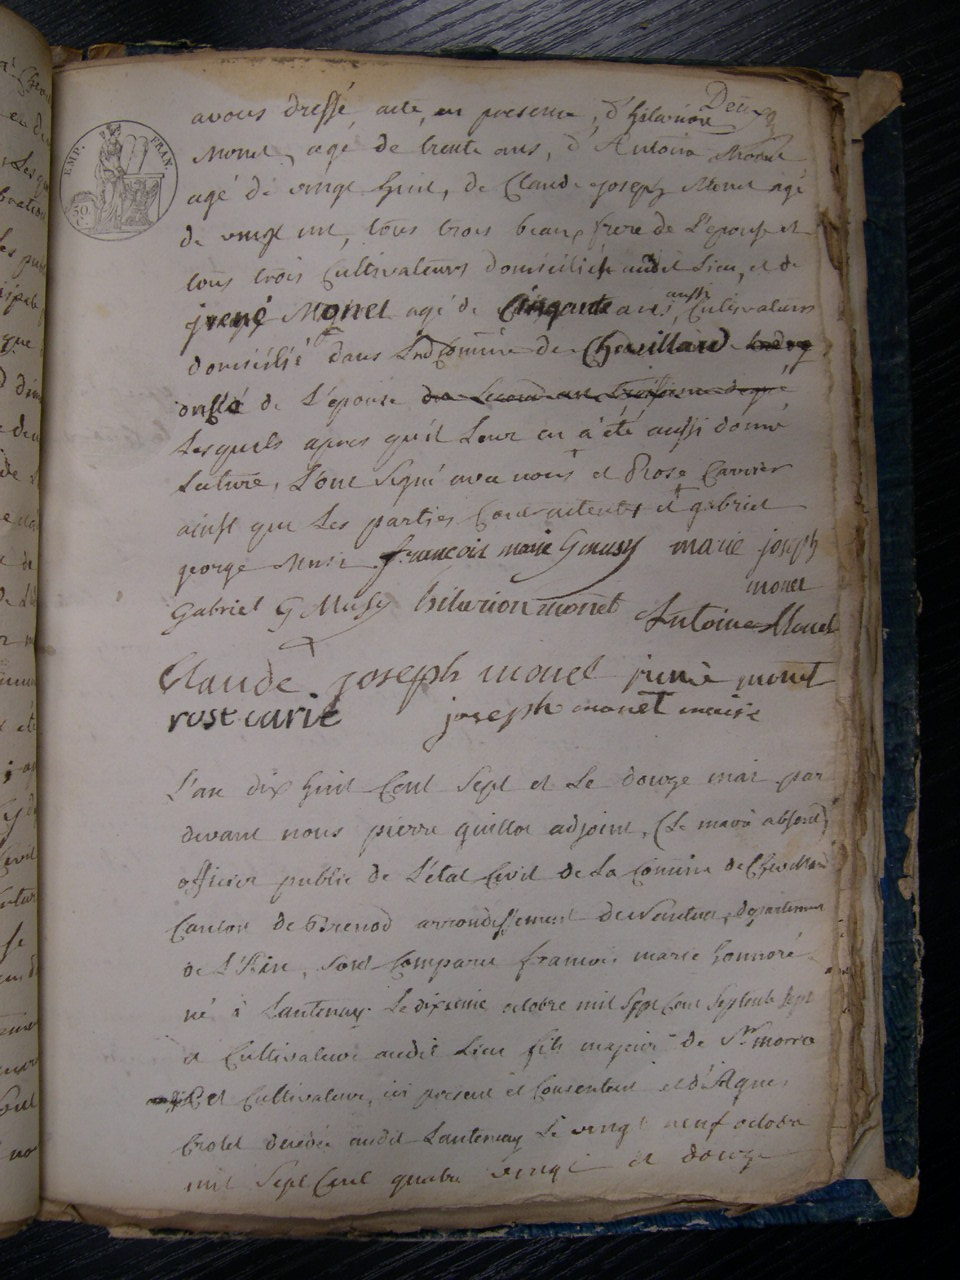 Deux
avons dressé, acte, en presence, d'hilarion
Monet, agé de trente ans, d'Antoine Monet
agé de vingt huit, de Claude joseph Monet agé
de vingt un, tous trois beaux frere de L'epouse et
tous trois Cultivateurs domiciliés audit Lieu, et de
EMP. FRAN.
50 C.
jrené Monet agé de Cinqante ans, aussi Cultivateurs
domicilié dans Commune de Chevillard
de L'épouse
Lesquels apres qu'il Leur en a été aussi donné
Lecture, L'ont signé avec nous et Rose Carrier
ainsi que Les parties Contractentes et gabriel
george Musi françois marie G musy marie joseph
monet
Gabriel G Musy hilarion monet Antoine Monet
Claude joseph monet jrené monet
rose carie joseph monet maire
L'an dix huit Cent Sept et Le douze mai par
devant nous pierre guillot adjoint, (Le maire absent)
officier public de L'état Civil de La Commune de Chevillard
Canton de Brenod arrondissement de Nantua, departement
de L'Ain, sont Comparu françois marie honnoré
né à Lantenay Le dixieme octobre mil Sept Cent Septente Sept
et Cultivateur audit Lieu fils majeur de
et Cultivateur, ici present et Consentent et d'Agnes
decedée audit Lantenay Le vingt neuf octobre
mil Sept Cent quatre vingt et douze